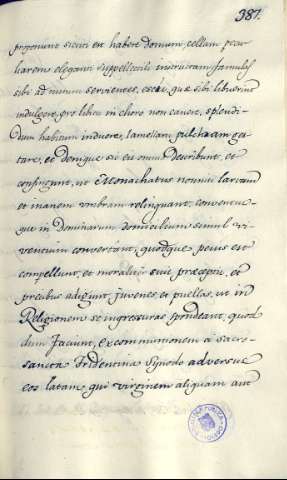 387.
proponunt sicuti est habere domum, cellam pecu
liarem eleganti suppellectili instructam famulos
sibi ad nutum servientes, escis, quæ sibi libuerint
indulgere, pro libitu in choro non canere, splendi-
dum habitum induere, lamellam pulchram ges-
tare, et denique sic eu omnia describunt, et
confingunt, ut Monachatus nonnisi larvam
et inanem umbram relinquant, conventus-
que in Dominarum domicilium simul vi-
ventium convertant, quodque peius est
compellunt, et moralis sive præceptis, et
precibus adigunt, juvenes, et puellas, ut in
Religionem se ingressuras spondeant, quod
dum faciunt, excommunionem à Sacro-
sancta Tridentina Synodo adversus
eos latam, qui virginem aliquam aut